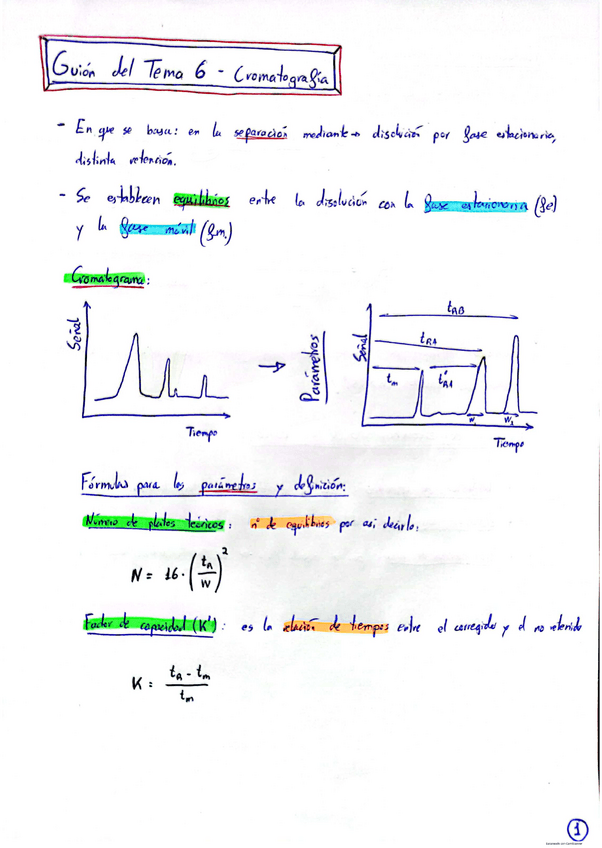 Guión del Tema 6 - Cromatografía
- En que se basa: en la separación mediante → disolución por fase estacionaria,
distinta retención.
- Se establecen equilibrios entre la disolución con la fase estacionaria (fe)
y la fase móvil (f.m.)
Cromatograma:
Señal
Tiempo
→
Parámetros
Señal
tRB
tRA
tm
t'RA
W
W2
Tiempo
Fórmulas para los parámetros y definición:
Número de platos teóricos: nº de equilibrios por así decirlo:
N = 16 · (tR/W)²
Factor de capacidad (K'): es la relación de tiempos entre el corregido y el no retenido
K = (tR - tm)/tm
1
Escaneado con CamScanner